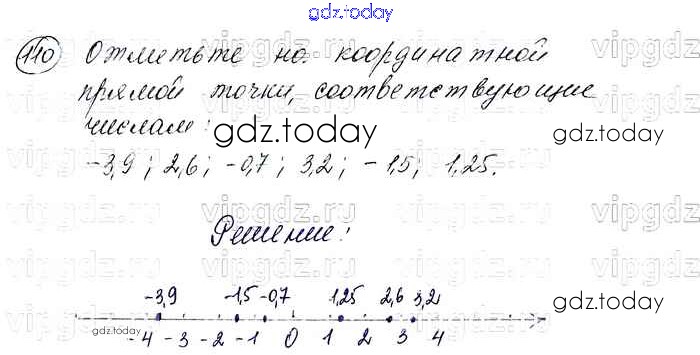 gdz.today
110 Отметьте на координатной
прямой точки, соответствующие
числам:
gdz.today
-3,9; 2,6; -0,7; 3,2; -1,5; 1,25.
Решение:
-3,9 -1,5 -0,7 1,25 2,6 3,2
gdz.today
-4 -3 -2 -1 0 1 2 3 4
gdz.today
vipgdz.ru